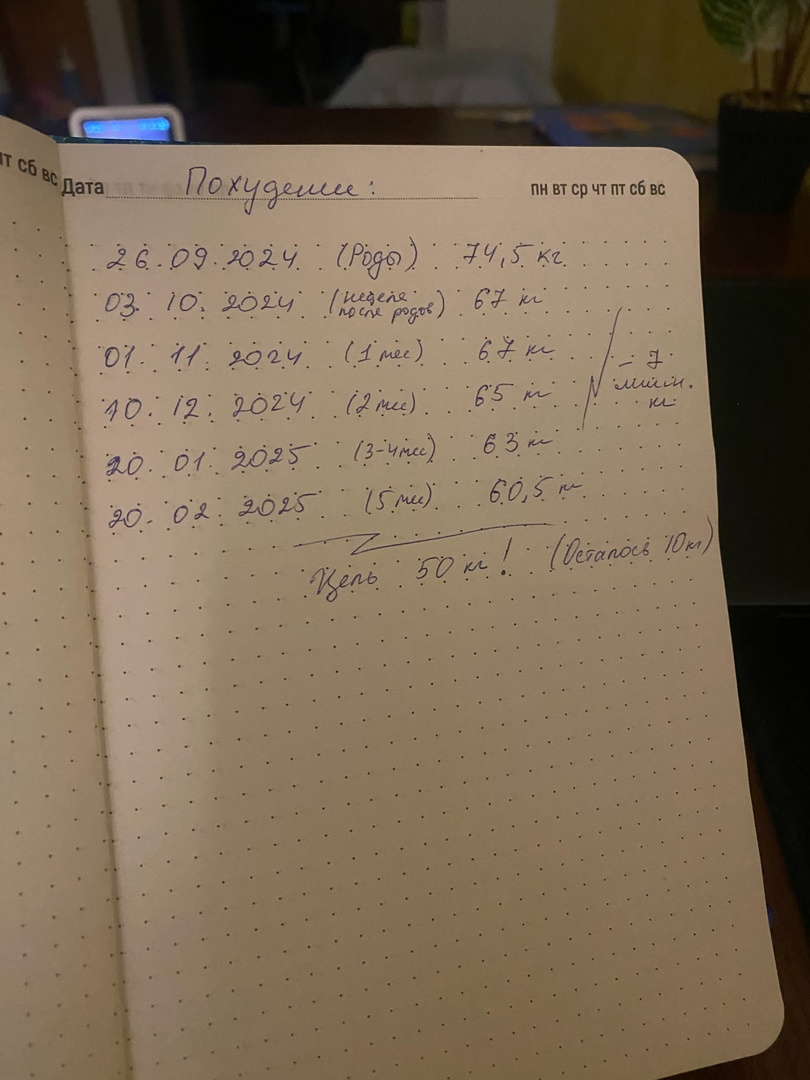 пт сб вс
Дата Похудение: пн вт ср чт пт сб вс
26.09.2024 (Роды) 74,5 кг
03.10.2024 (неделя после родов) 67 кг
01.11.2024 (1 мес) 67 кг
10.12.2024 (2 мес) 65 кг
- 7
лишн.
кг
20.01.2025 (3-4 мес) 63 кг
20.02.2025 (5 мес) 60,5 кг
Цель 50 кг! (Осталось 10 кг)